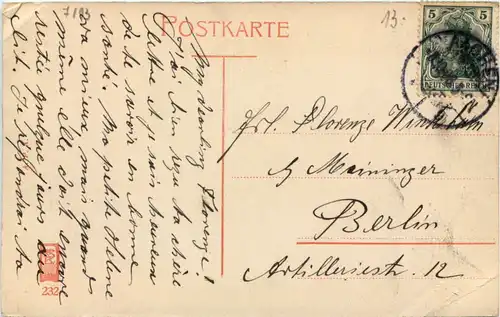 7193
13.-
POSTKARTE
5 5
DEUTSCHES REICH
AACHEN
Frl. Florenze
b/ Maininger
Berlin
Artilleriestr. 12
My darling Florenze!
J'ai bien reçu ta chère
lettre et je suis heureux
de te savoir en bonne
santé. Ma petite Helene
va mieux mais quand
même elle doit encore
rester quelque jours au
lit. Je répondrai ta
232